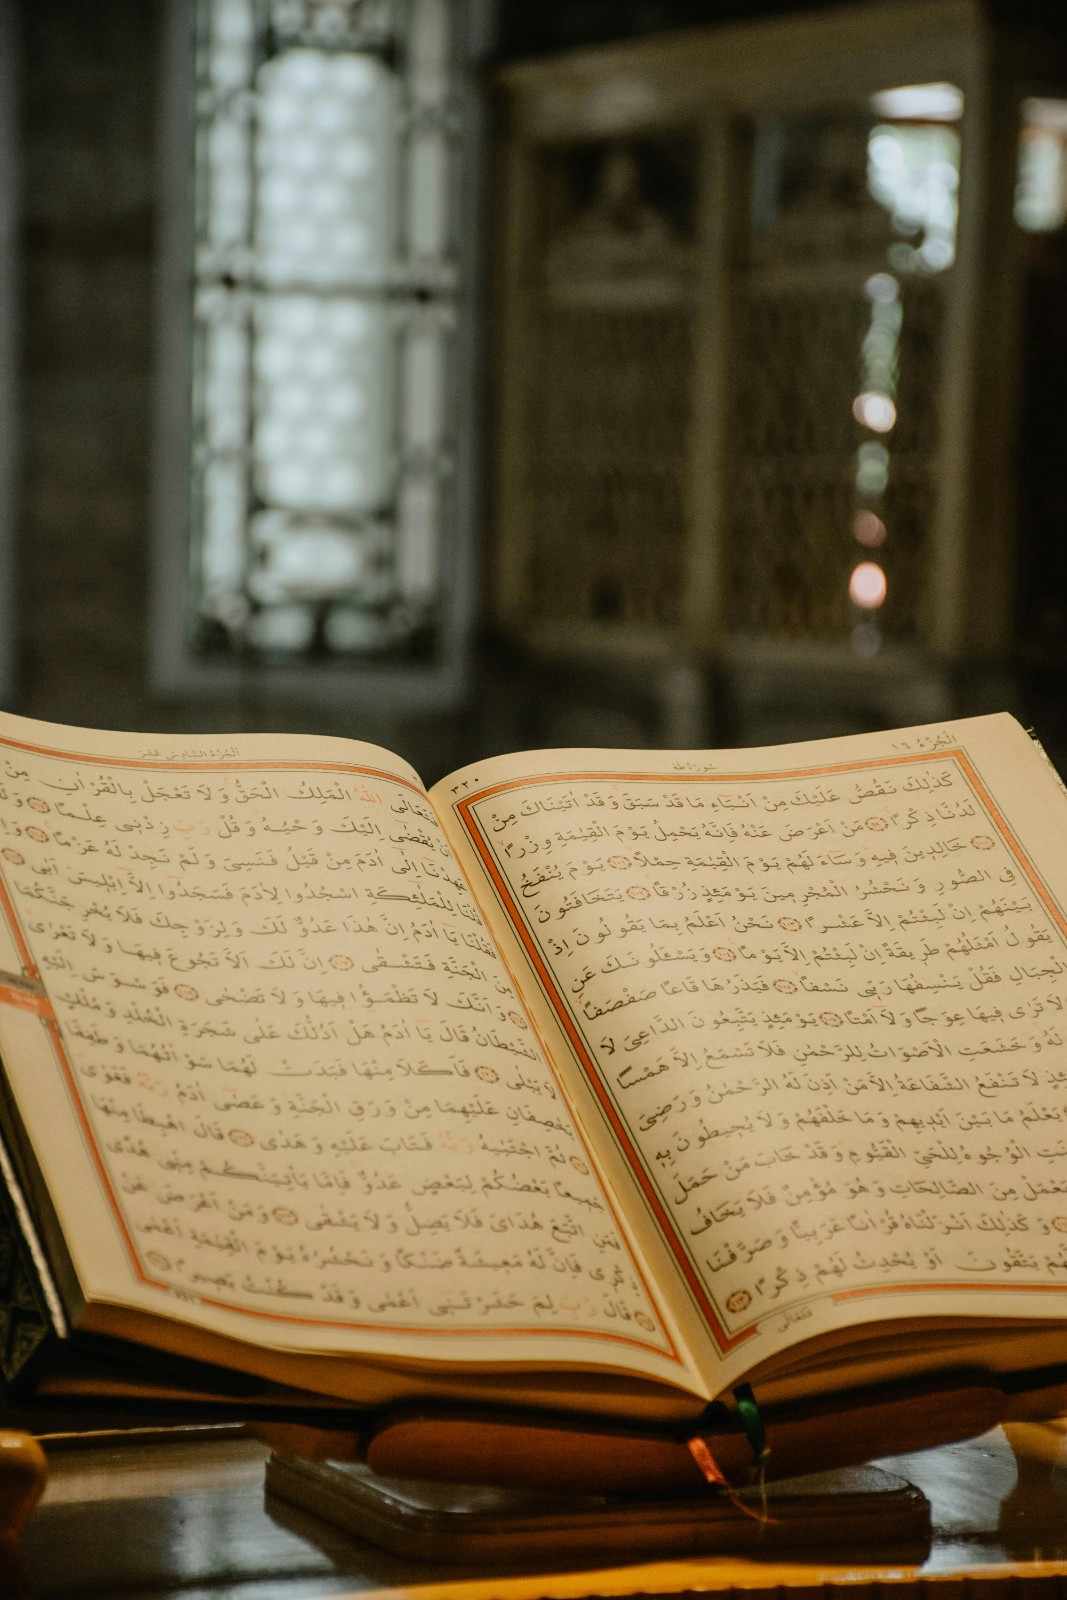 الْجُزْءُ ١٦
سُورَةُ طٰهٰ
٣٢٠
كَذٰلِكَ نَقُصُّ عَلَيْكَ مِنْ اَنْبَاءِ مَا قَدْ سَبَقَ وَقَدْ اٰتَيْنَاكَ مِنْ
لَدُنَّا ذِكْرًا مَنْ اَعْرَضَ عَنْهُ فَاِنَّهُ يَحْمِلُ يَوْمَ الْقِيٰمَةِ وِزْرًا
خَالِدِينَ فِيهِ وَسَاءَ لَهُمْ يَوْمَ الْقِيٰمَةِ حِمْلًا يَوْمَ يُنْفَخُ
فِي الصُّورِ وَنَحْشُرُ الْمُجْرِمِينَ يَوْمَئِذٍ زُرْقًا يَتَخَافَتُونَ
بَيْنَهُمْ اِنْ لَبِثْتُمْ اِلَّا عَشْرًا نَحْنُ اَعْلَمُ بِمَا يَقُولُونَ اِذْ
يَقُولُ اَمْثَلُهُمْ طَرِيقَةً اِنْ لَبِثْتُمْ اِلَّا يَوْمًا وَيَسْئَلُونَكَ عَنِ
الْجِبَالِ فَقُلْ يَنْسِفُهَا رَبِّي نَسْفًا فَيَذَرُهَا قَاعًا صَفْصَفًا
لَا تَرٰى فِيهَا عِوَجًا وَلَا اَمْتًا يَوْمَئِذٍ يَتَّبِعُونَ الدَّاعِيَ لَا
لَهُ وَخَشَعَتِ الْاَصْوَاتُ لِلرَّحْمٰنِ فَلَا تَسْمَعُ اِلَّا هَمْسًا
لَا تَنْفَعُ الشَّفَاعَةُ اِلَّا مَنْ اَذِنَ لَهُ الرَّحْمٰنُ وَرَضِيَ
يَعْلَمُ مَا بَيْنَ اَيْدِيهِمْ وَمَا خَلْفَهُمْ وَلَا يُحِيطُونَ بِهِ
الْوُجُوهُ لِلْحَيِّ الْقَيُّومِ وَقَدْ خَابَ مَنْ حَمَلَ
يَعْمَلْ مِنَ الصَّالِحَاتِ وَهُوَ مُؤْمِنٌ فَلَا يَخَافُ
وَكَذٰلِكَ اَنْزَلْنَاهُ قُرْاٰنًا عَرَبِيًّا وَصَرَّفْنَا
يَتَّقُونَ اَوْ يُحْدِثُ لَهُمْ ذِكْرًا
فَتَعَالَى
اَلْجُزْءُ السَّادِسَ عَشَرَ
فَتَعَالَى اللّٰهُ الْمَلِكُ الْحَقُّ وَلَا تَعْجَلْ بِالْقُرْاٰنِ مِنْ
يُقْضٰى اِلَيْكَ وَحْيُهُ وَقُلْ رَبِّ زِدْنِي عِلْمًا
عَهِدْنَا اِلٰى اٰدَمَ مِنْ قَبْلُ فَنَسِيَ وَلَمْ نَجِدْ لَهُ عَزْمًا
قُلْنَا لِلْمَلٰئِكَةِ اسْجُدُوا لِاٰدَمَ فَسَجَدُوا اِلَّا اِبْلِيسَ اَبٰى
فَقُلْنَا يَا اٰدَمُ اِنَّ هٰذَا عَدُوٌّ لَكَ وَلِزَوْجِكَ فَلَا يُخْرِجَنَّكُمَا
مِنَ الْجَنَّةِ فَتَشْقٰى اِنَّ لَكَ اَلَّا تَجُوعَ فِيهَا وَلَا تَعْرٰى
وَاَنَّكَ لَا تَظْمَؤُا فِيهَا وَلَا تَضْحٰى فَوَسْوَسَ اِلَيْهِ
الشَّيْطَانُ قَالَ يَا اٰدَمُ هَلْ اَدُلُّكَ عَلٰى شَجَرَةِ الْخُلْدِ وَمُلْكٍ
لَا يَبْلٰى فَاَكَلَا مِنْهَا فَبَدَتْ لَهُمَا سَوْاٰتُهُمَا وَطَفِقَا
يَخْصِفَانِ عَلَيْهِمَا مِنْ وَرَقِ الْجَنَّةِ وَعَصٰى اٰدَمُ رَبَّهُ فَغَوٰى
ثُمَّ اجْتَبٰيهُ رَبُّهُ فَتَابَ عَلَيْهِ وَهَدٰى قَالَ اهْبِطَا مِنْهَا
جَمِيعًا بَعْضُكُمْ لِبَعْضٍ عَدُوٌّ فَاِمَّا يَاْتِيَنَّكُمْ مِنِّي هُدًى
فَمَنِ اتَّبَعَ هُدَايَ فَلَا يَضِلُّ وَلَا يَشْقٰى وَمَنْ اَعْرَضَ عَنْ
ذِكْرِي فَاِنَّ لَهُ مَعِيشَةً ضَنْكًا وَنَحْشُرُهُ يَوْمَ الْقِيٰمَةِ اَعْمٰى
قَالَ رَبِّ لِمَ حَشَرْتَنِي اَعْمٰى وَقَدْ كُنْتُ بَصِيرًا